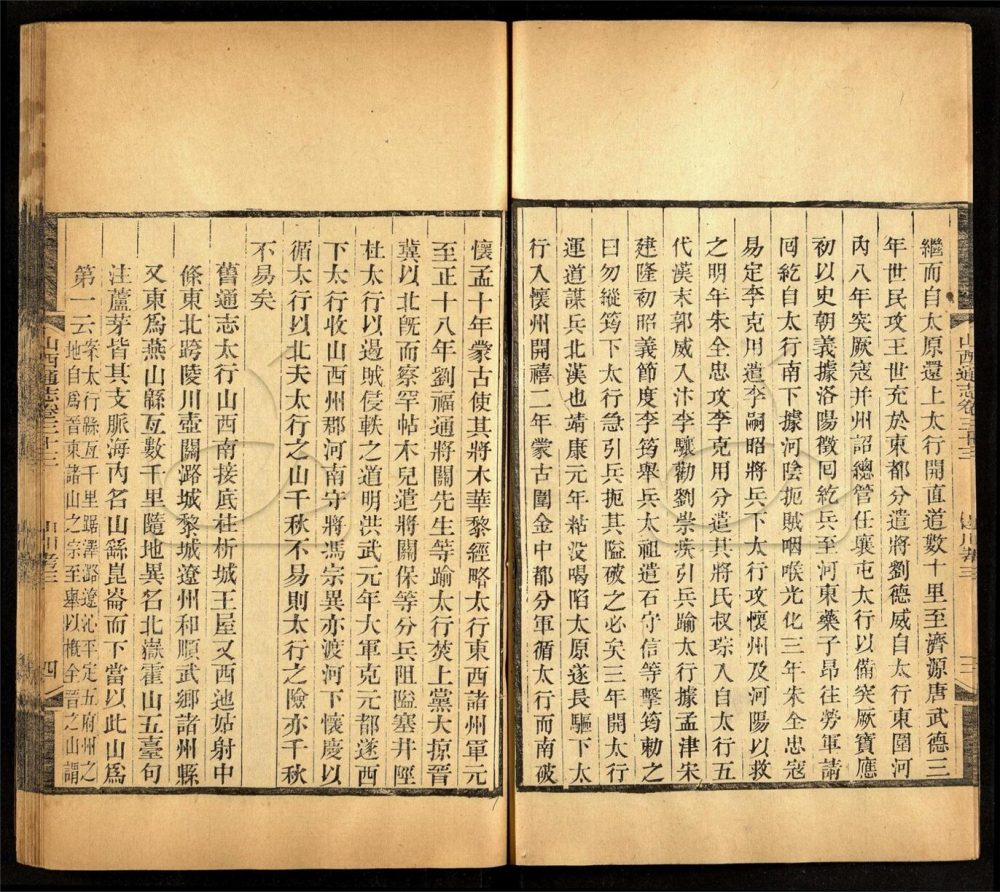 繼而自太原還上太行開直道數十里至濟源唐武德三
年世民攻王世充於東都分遣將劉德威自太行東圍河
內八年突厥寇并州詔總管任瓌屯太行以備突厥寶應
初以史朝義據洛陽徵囘紇兵至河東藥子昂往勞軍請
囘紇自太行南下據河陰扼賊咽喉光化三年朱全忠寇
易定李克用遣李嗣昭將兵下太行攻懷州及河陽以救
之明年朱全忠攻李克用分遣其將氏叔琮入自太行五
代漢末郭威入汴李驤勸劉崇疾引兵踰太行據孟津宋
建隆初昭義節度李筠舉兵太祖遣石守信等擊筠勅之
曰勿縱筠下太行急引兵扼其隘破之必矣三年開太行
運道謀兵北漢也靖康元年粘没喝陷太原遂長驅下太
行入懷州開禧二年蒙古圍金中都分軍循太行而南破
山西通志卷三十三 山川考三 三
懷孟十年蒙古使其將木華黎經略太行東西諸州軍元
至正十八年劉福通將關先生等踰太行焚上黨大掠晉
冀以北旣而察罕帖木兒遣將關保等分兵阻隘塞井陘
杜太行以遏賊侵軼之道明洪武元年大軍克元都遂西
下太行收山西州郡河南守將馮宗異亦渡河下懷慶以
循太行以北夫太行之山千秋不易則太行之險亦千秋
不易矣
舊通志太行山西南接底柱析城王屋又西迆姑射中
條東北跨陵川壺關潞城黎城遼州和順武鄉諸州縣
又東爲燕山緜亙數千里隨地異名北嶽霍山五臺句
注蘆芽皆其支脈海內名山繇崑崙而下當以此山爲
第一云案太行緜亙千里踞澤潞遼沁平定五府州之
地自爲晉東諸山之宗至舉以槪全晉之山謂
山西通志卷三十三 山川考三 四